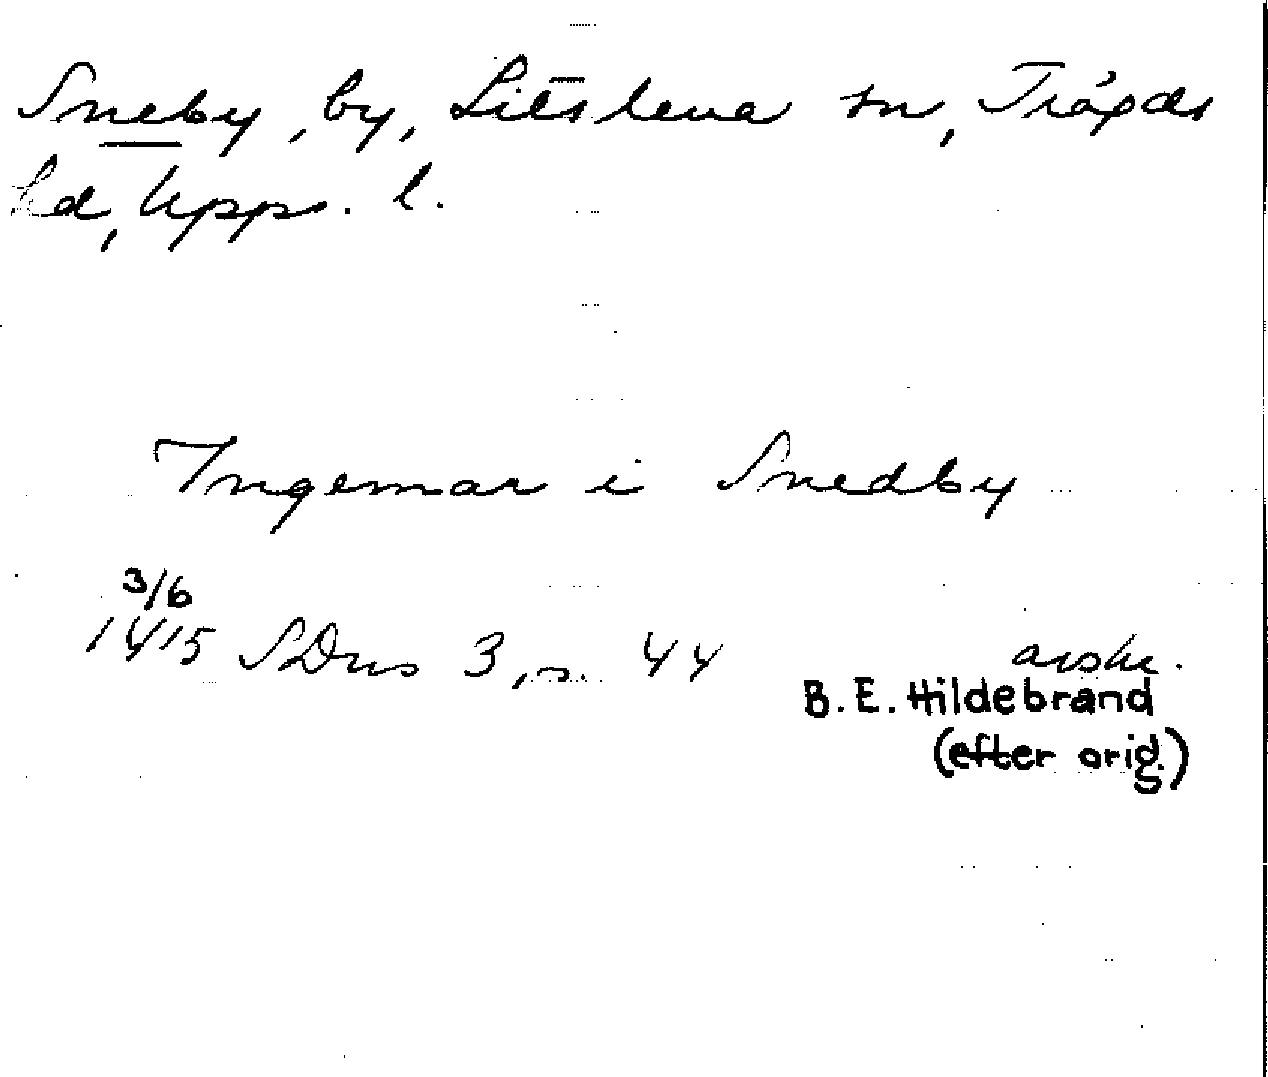 Sneby, by, Litslena sn, Trögds
hd, Upps. l.
Ingemar i Snedby
3/6
1415 SDns 3, s. 44 avskr.
B. E. Hildebrand
(efter orig.)